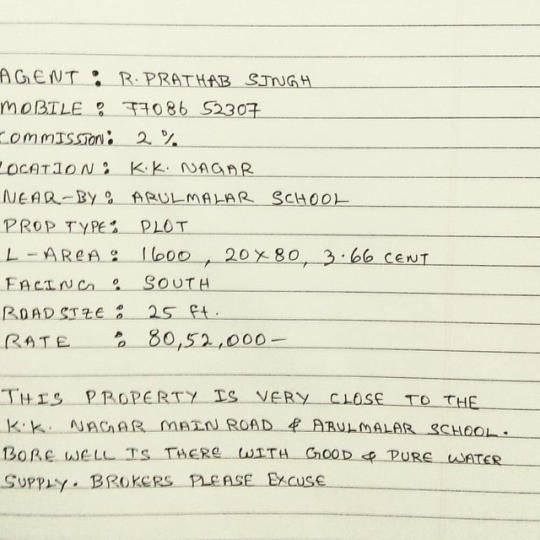 AGENT : R. PRATHAB SINGH
MOBILE : 77086 52307
COMMISSION : 2 %
LOCATION : K.K. NAGAR
NEAR-BY : ARULMALAR SCHOOL
PROP TYPE : PLOT
L-AREA : 1600 , 20x80, 3.66 CENT
FACING : SOUTH
ROADSIZE : 25 ft.
RATE : 80,52,000-
THIS PROPERTY IS VERY CLOSE TO THE
K.K. NAGAR MAIN ROAD & ARULMALAR SCHOOL.
BORE WELL IS THERE WITH GOOD & PURE WATER
SUPPLY. BROKERS PLEASE EXCUSE